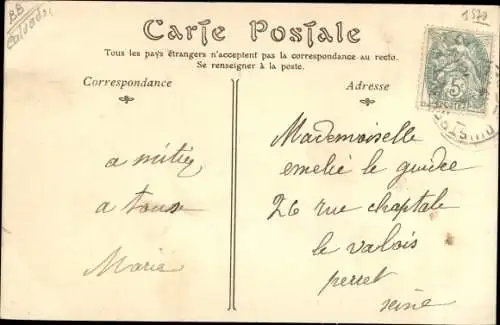 BB
Calvados
1570
Carte Postale
Tous les pays étrangers n'acceptent pas la correspondance au recto.
Se renseigner à la poste.
Correspondance
Adresse
5c
a mitiez
a tous
Marie
Mademoiselle
emelie le guidee
26 rue chaptale
le valois
perret
seine